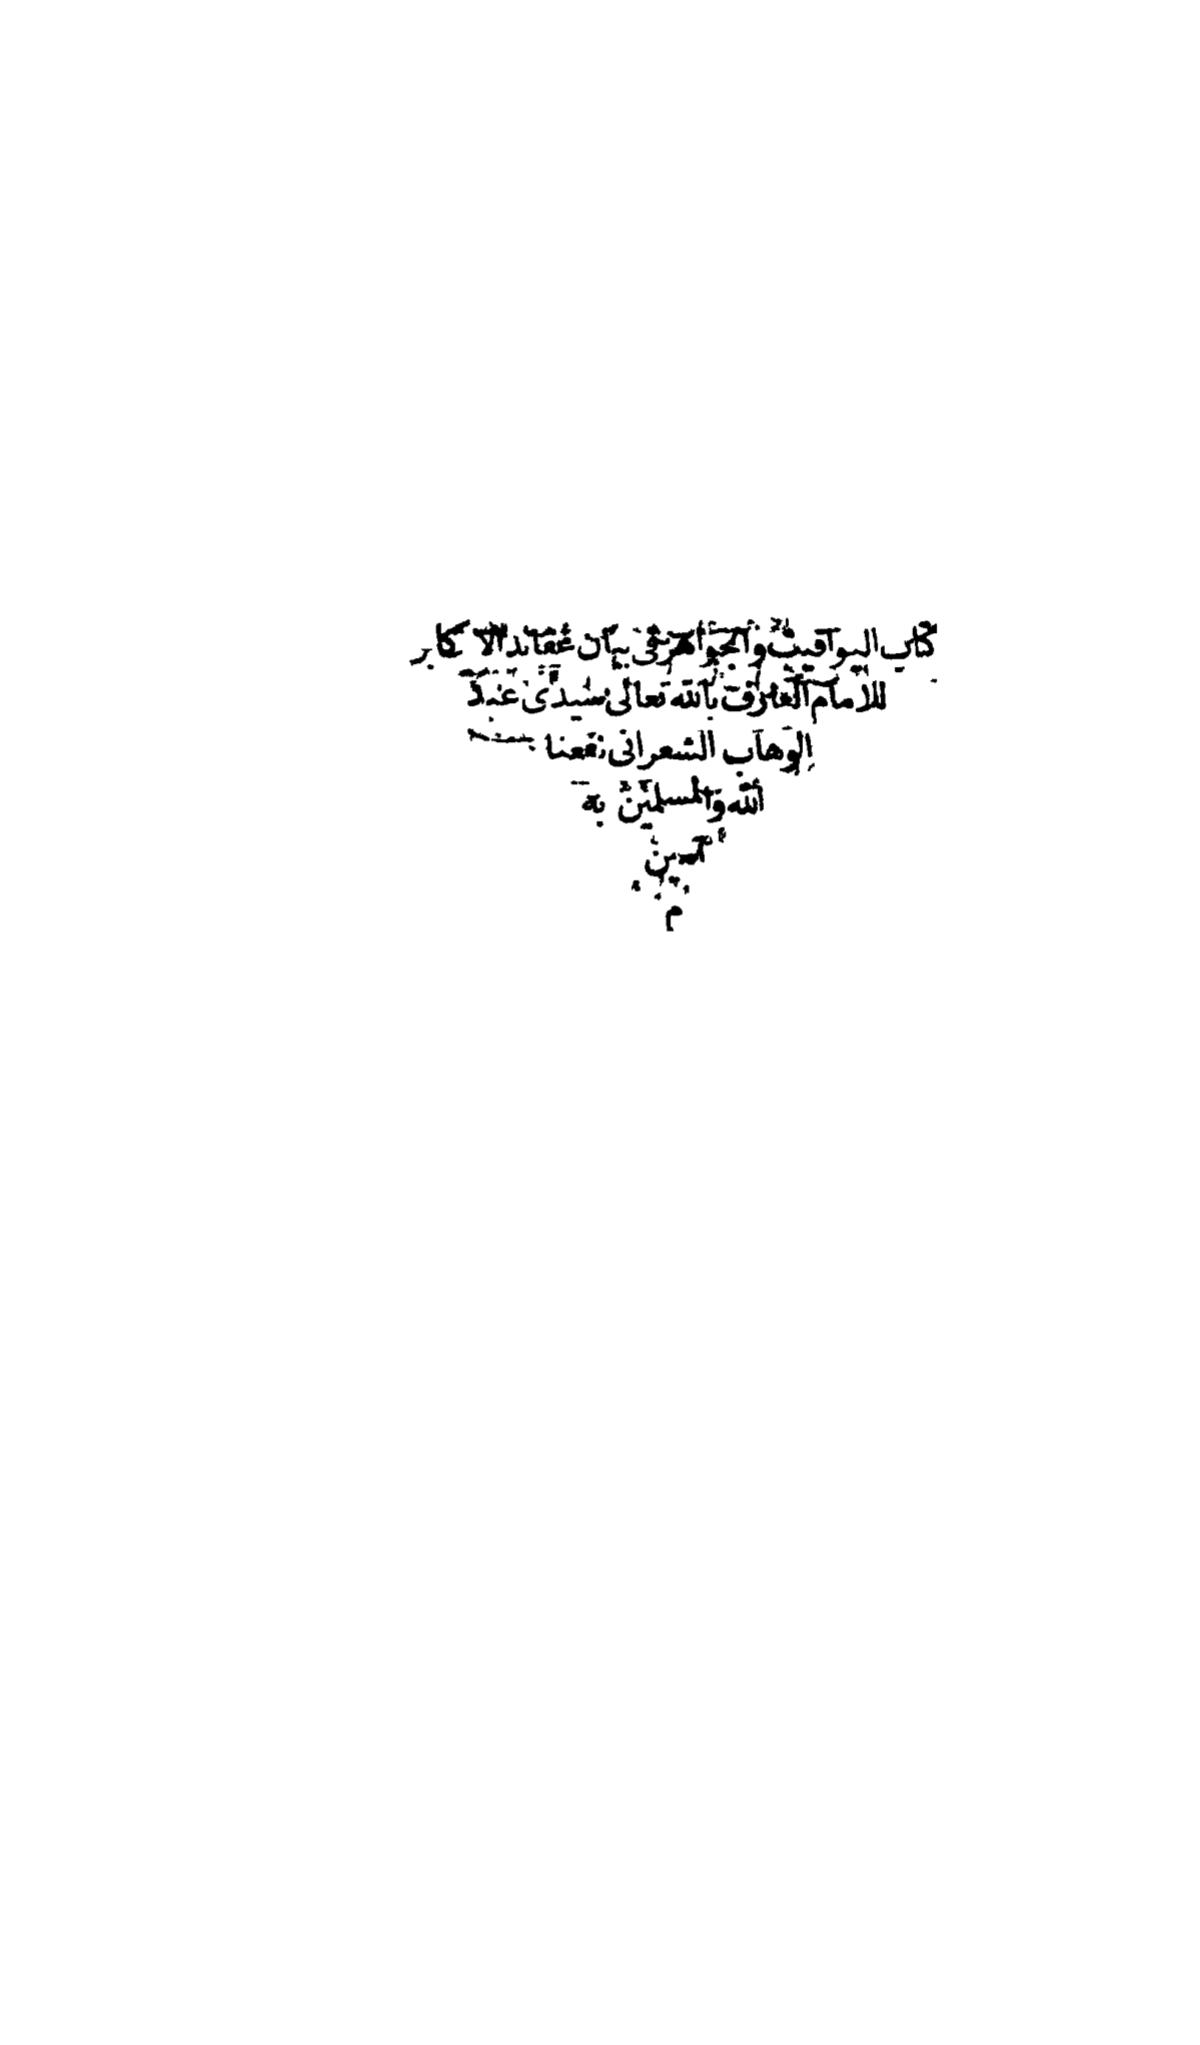 كتاب اليواقيت والجواهر فى بيان عقائد الاكابر
للامام العارف بالله تعالى سيدى عبد
الوهاب الشعرانى نفعنا
الله والمسلمين به
آمين
م